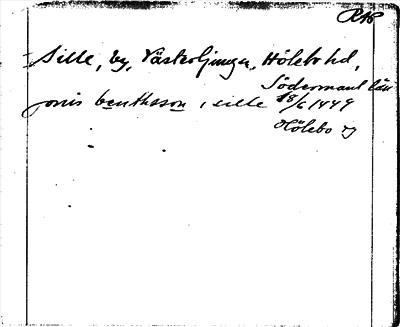 RAp
Sille, by, Västerljungn, Hölebo hd,
Södermanl län
jonis benthsson i sille 18/6 1449
Hölebo